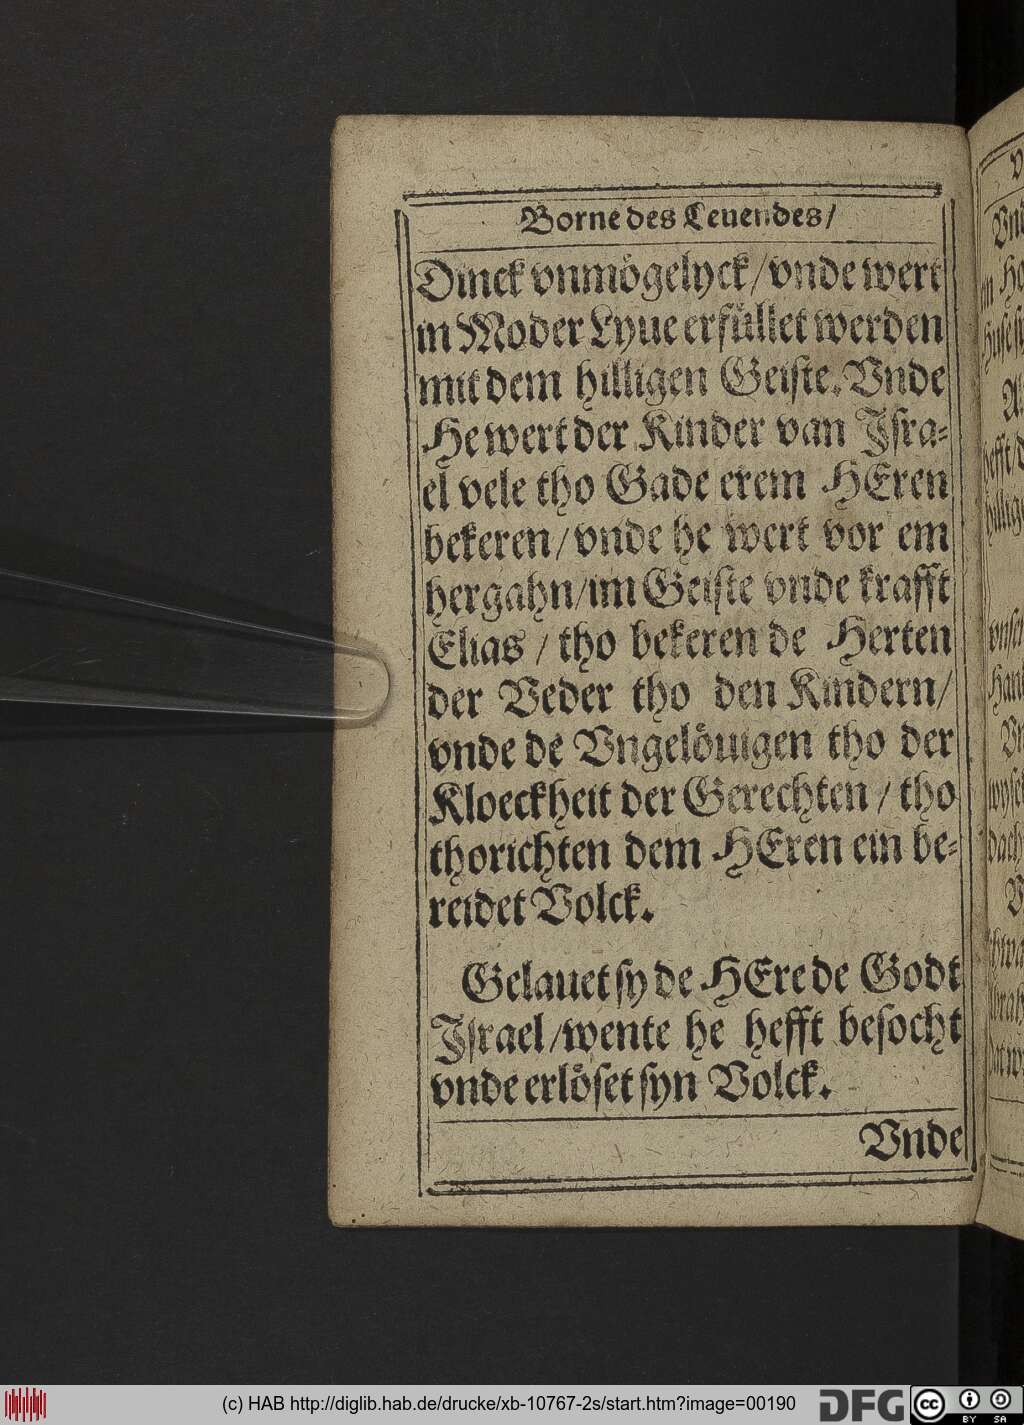 Borne des Leuendes/
Dinck vnmögelyck/vnde wert
in Moder Lyue erfüllet werden
mit dem hilligen Geiste. Vnde
He wert der Kinder van Jsra-
el vele tho Gade erem HEren
bekeren/vnde he wert vor em
hergahn/im Geiste vnde krafft
Elias / tho bekeren de Herten
der Veder tho den Kindern/
vnde de Vngelöuigen tho der
Kloeckheit der Gerechten / tho
thorichten dem HEren ein be-
reidet Volck.
Gelauet sy de HEre de Godt
Jsrael/wente he hefft besocht
vnde erlöset syn Volck.
Vnde
(c) HAB http://diglib.hab.de/drucke/xb-10767-2s/start.htm?image=00190
DFG
cc BY SA